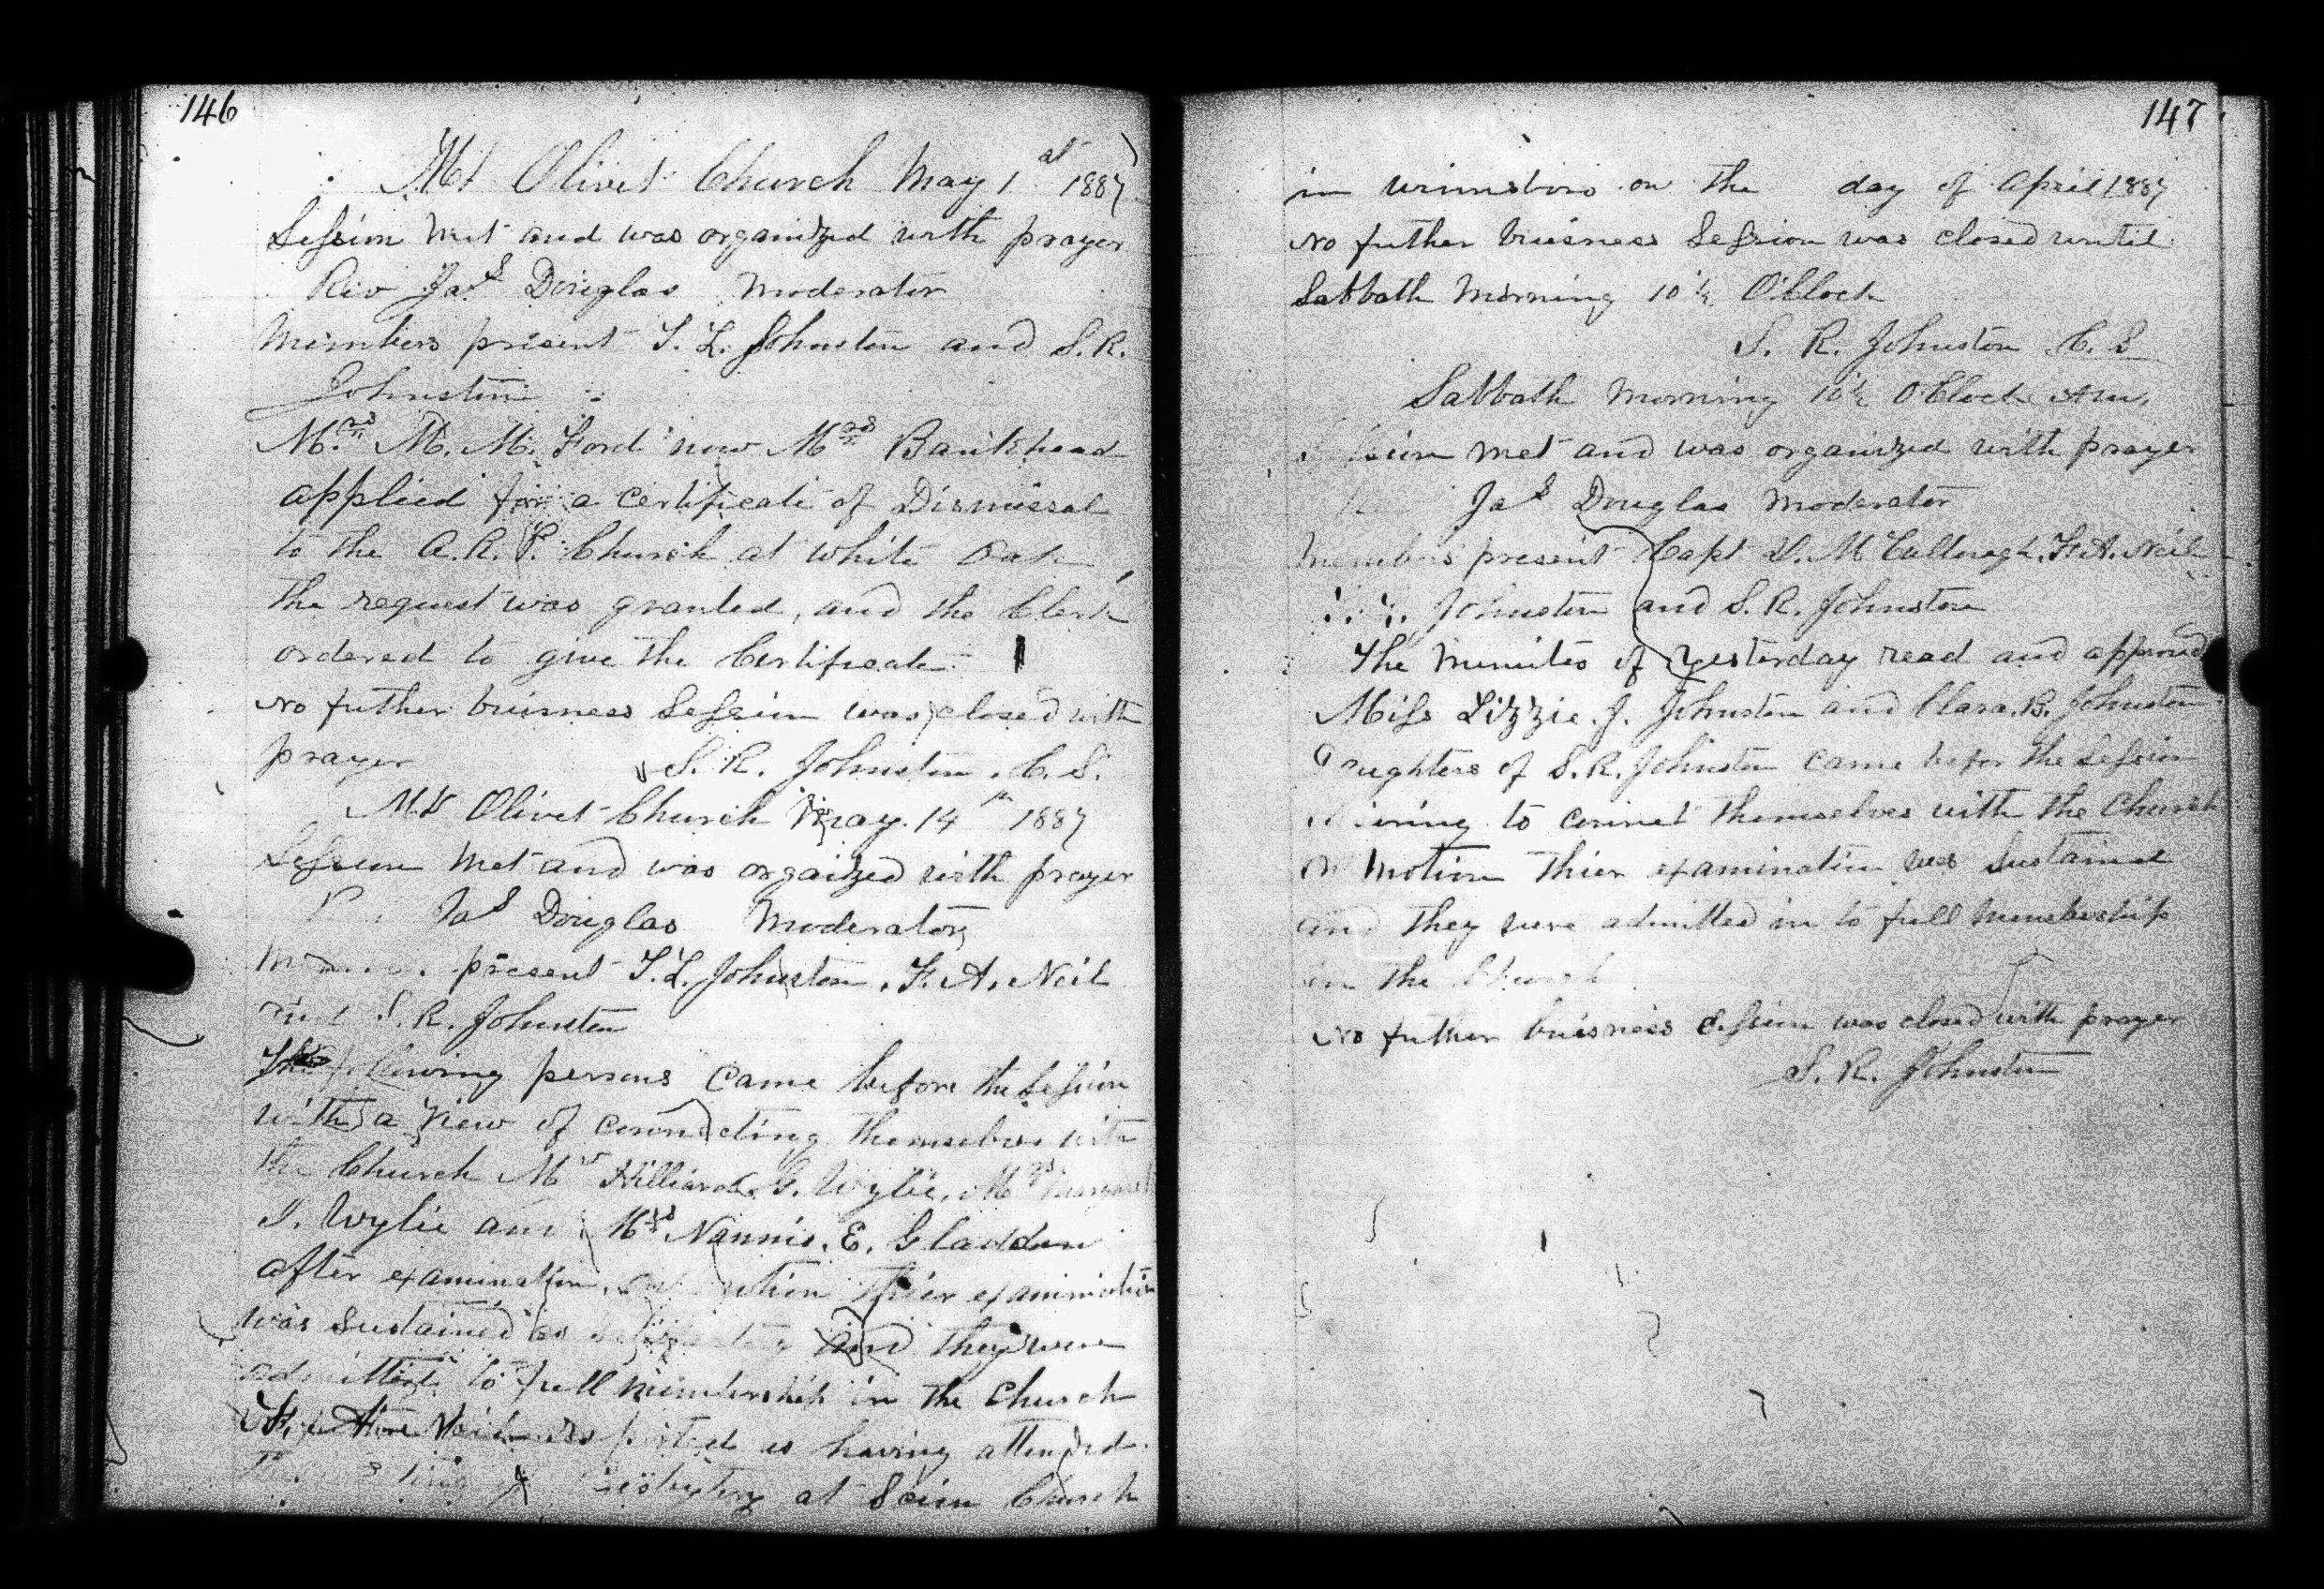 146
Mt Olivet Church May 1st 1887
Session Met and was organized with prayer
Rev Jas Douglas Moderator
Members present T. L. Johnston and S. R.
Johnston
Mrs M. M. Ford now Mrs Bankhead
applied for a certificate of Dismissal
to the A. R. P. Church at White Oak,
the request was granted, and the Clerk
ordered to give the Certificate
No futher buisness Session was closed with
prayer S. R. Johnston. C. S.
Mt Olivet Church May 14th 1887
Session Met and was orgaized with prayer
Jas Douglas Moderator
present T. L. Johnston, F. A. Neil
and S. R. Johnston
persons Came before the Session
with a view of themselves with
the Church Mr Hilliard G. Wylie, Mrs
I. Wylie and Mrs Nannie. E. Gladden
after examination, thier examination
was Sustained and they were
admitted to full membership in the Church
as having attended
at Scion Church
147
in winnsboro on the day of April 1887
No futher buisness Session was closed until
Sabbath Morning 10½ O'Clock
S. R. Johnston C. S
Sabbath Morning 10½ OClock Am.
met and was organized with prayer
Jas Douglas Moderator
Members present Capt D. McCullough, F. A. Neil
Johnston and S. R. Johnston
The Minutes of Yesterday read and approved
Miss Lizzie. J. Johnston and Clara. B. Johnston
Daughters of S. R. Johnston Came befor the Session
to connet themselves with the Church
on Motion Thier examination was Sustained
and they were admitted in to full Membership
in the Church
No futher buisness Session was closed with prayer
S. R. Johnston